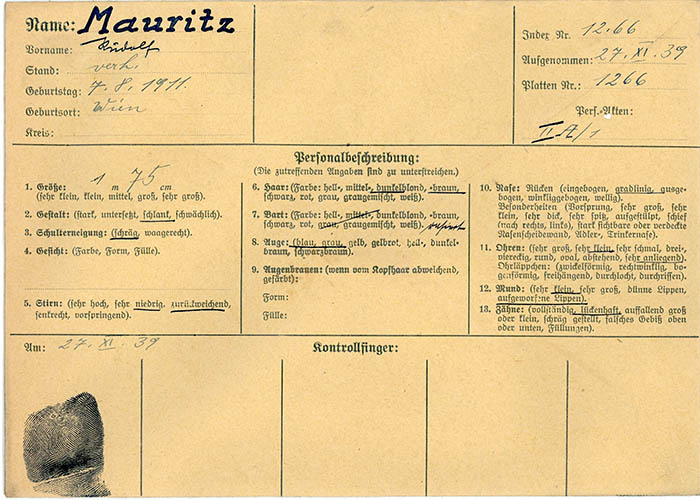 Name: Mauritz
Vorname: Rudolf
Stand: verh.
Geburtstag: 7. 8. 1911.
Geburtsort: Wien
Kreis:
Index Nr. 12.66
Aufgenommen: 27. XI. 39
Platten Nr.: 1266
Pers.-Akten:
II A/1
Personalbeschreibung:
(Die zutreffenden Angaben sind zu unterstreichen.)
1. Größe: 1 m 75 cm
(sehr klein, klein, mittel, groß, sehr groß).
2. Gestalt: (stark, untersetzt, schlank, schwächlich).
3. Schulterneigung: (schräg, waagerecht).
4. Gesicht: (Farbe, Form, Fülle).
5. Stirn: (sehr hoch, sehr niedrig, zurückweichend,
senkrecht, vorspringend).
6. Haar: (Farbe: hell-, mittel-, dunkelblond, -braun,
schwarz, rot, grau, graugemischt, weiß).
7. Bart: (Farbe: hell-, mittel-, dunkelblond, -braun,
schwarz, rot, grau, graugemischt, weiß). rasiert
8. Auge: (blau, grau, gelb, gelbrot, hell-, dunkel-
braun, schwarzbraun).
9. Augenbrauen: (wenn vom Kopfhaar abweichend,
gefärbt):
Form:
Fülle:
10. Nase: Rücken (eingebogen, gradlinig, ausge-
bogen, winkliggebogen, wellig).
Besonderheiten (Vorsprung, sehr groß, sehr
klein, sehr dick, sehr spitz, aufgestülpt, schief
(nach rechts, links), stark sichtbare oder verdeckte
Nasenscheidewand, Adler-, Trinkernase).
11. Ohren: (sehr groß, sehr klein, sehr schmal, drei-,
viereckig, rund, oval, abstehend, sehr anliegend).
Ohrläppchen: (zwickelförmig, rechtwinklig, bo-
genförmig, freihängend, durchlocht, durchriffen).
12. Mund: (sehr klein, sehr groß, dünne Lippen,
aufgeworfene Lippen).
13. Zähne: (vollständig, lückenhaft, auffallend groß
oder klein, schräg gestellt, falsches Gebiß oben
oder unten, Füllungen).
Am: 27. XI. 39
Kontrollfinger: